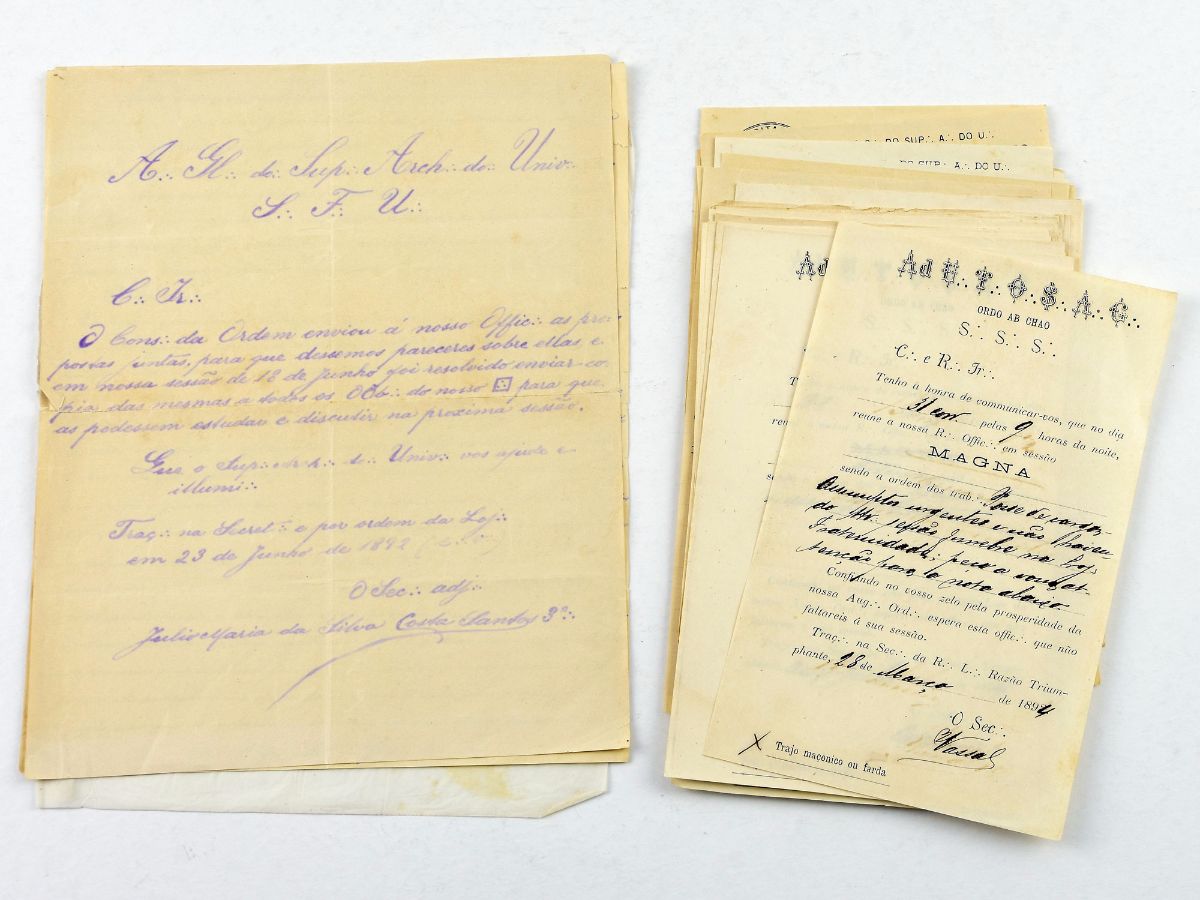 A∴ Gl∴ do Sup∴ Arch∴ do Univ∴
S∴ F∴ U∴
C∴ Ir∴
O Cons∴ da Ordem enviou á nosso Offic∴ as pro-
postas juntas, para que dessemos pareceres sobre ellas, e
em nossa sessão de 18 de Junho foi resolvido enviar-co-
pia das mesmas a todos os Obb∴ do nosso para que
as podessem estudar e discutir na proxima sessão.
Que o Sup∴ Arch∴ do Univ∴ vos ajude e
illumi∴
Traç∴ na Secret∴ e por ordem da Loj∴
em 23 de Junho de 1892
O Sec∴ adj∴
Julio Maria da Silva Costa Santos 3º∴
DO SUP∴ A∴ DO U∴
DO SUP∴ A∴ DO U∴
Ad
Ad U∴ T∴ O∴ S∴ A∴ G∴
ORDO AB CHAO
S∴ S∴ S∴
C∴ e R∴ Ir∴
Tenho a honra de communicar-vos, que no dia
31 corr. pelas 9 horas da noite,
reune a nossa R∴ Offic∴ em sessão
MAGNA
sendo a ordem dos trab∴ Posse de cargos
Assumptos urgentes e não haven
do sessão funebre na Loj∴
Fraternidade; peço a vossa at-
tenção para a nota abaixo
Confiando no vosso zelo pela prosperidade da
nossa Aug∴ Ord∴ espera esta offic∴ que não
faltareis á sua sessão.
Traç∴ na Sec∴ da R∴ L∴ Razão Trium-
phante, 28 de Março de 1894
O Sec∴
X Trajo maconico ou farda